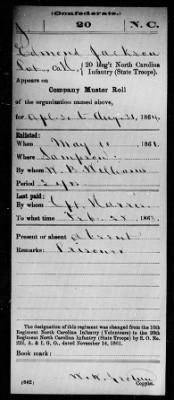 (Confederate.)
J 20 N. C.
Edmond Jackson
Pvt., Co. 20 Reg't North Carolina
Infantry (State Troops).
Appears on
Company Muster Roll
of the organization named above,
for Apl 30 to Aug 31, 1864.
Enlisted:
When May 11, 1861.
Where Sampson
By whom W. B. Williams
Period 2 yrs
Last paid:
By whom Cpt. Harris
To what time Feb. 28, 186
Present or absent absent
Remarks: Prisoner
The designation of this regiment was changed from the 10th
Regiment North Carolina Infantry (Volunteers) to the 20th
Regiment North Carolina Infantry (State Troops) by S. O. No.
222, A. & I. G. O., dated November 14, 1861.
Book mark:
(642)
Copyist.